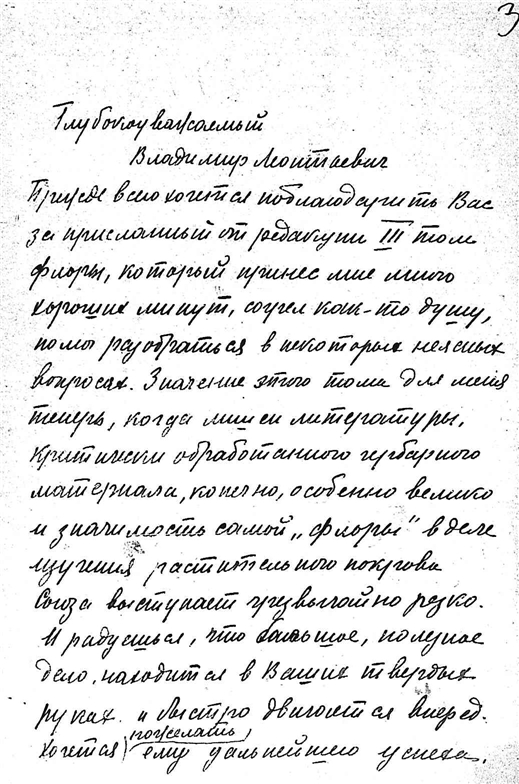 3
Глубокоуважаемый
Владимир Леонтьевич
Прежде всего хочется поблагодарить Вас
за присланный от редакции III том
флоры, который принес мне много
хороших минут, согрел как-то душу,
помог разобраться в некоторых неясных
вопросах. Значение этого тома для меня
теперь, когда лишен литературы,
критически обработанного гербарного
материала, конечно, особенно велико
и значимость самой „флоры" в деле
изучения растительного покрова
Союза выступает чрезвычайно резко.
И радуешься, что большое, полезное
дело, находится в Ваших твердых
руках и быстро двигается вперед.
Хочется пожелать ему дальнейшего успеха.